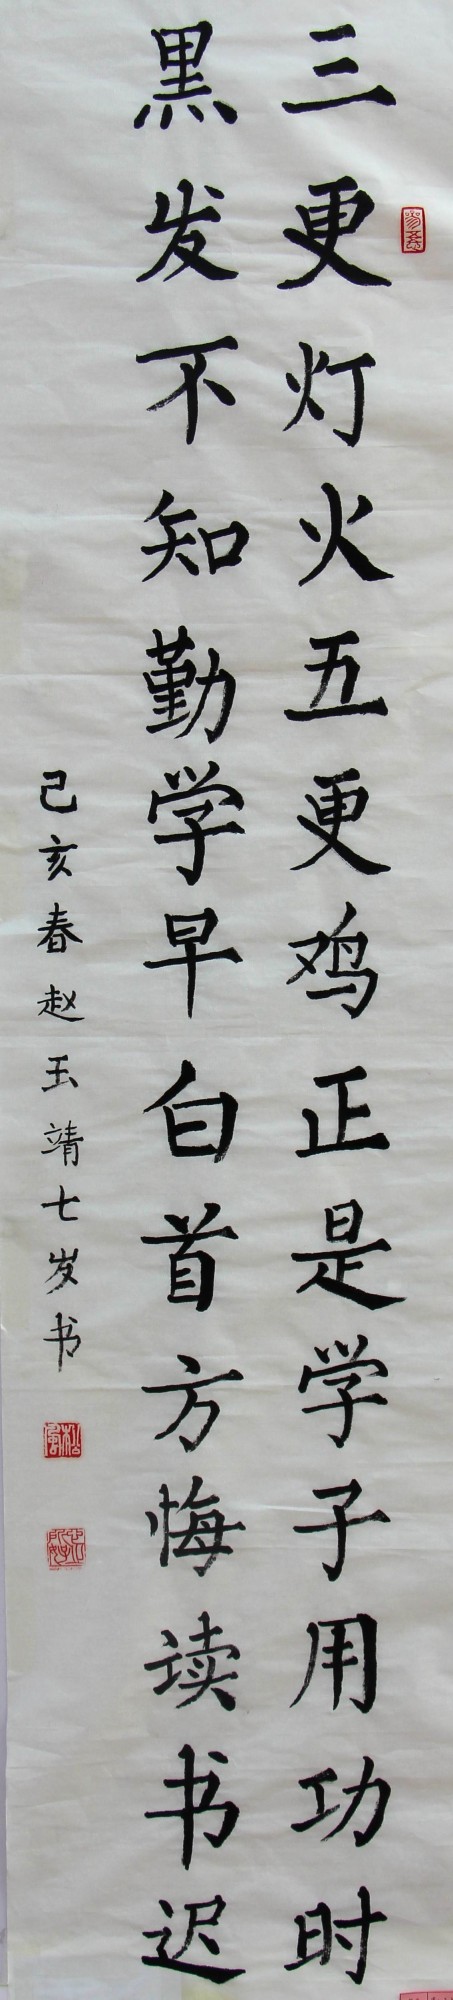 三更灯火五更鸡正是学子用功时
黑发不知勤学早白首方悔读书迟
己亥春赵玉靖七岁书
松風